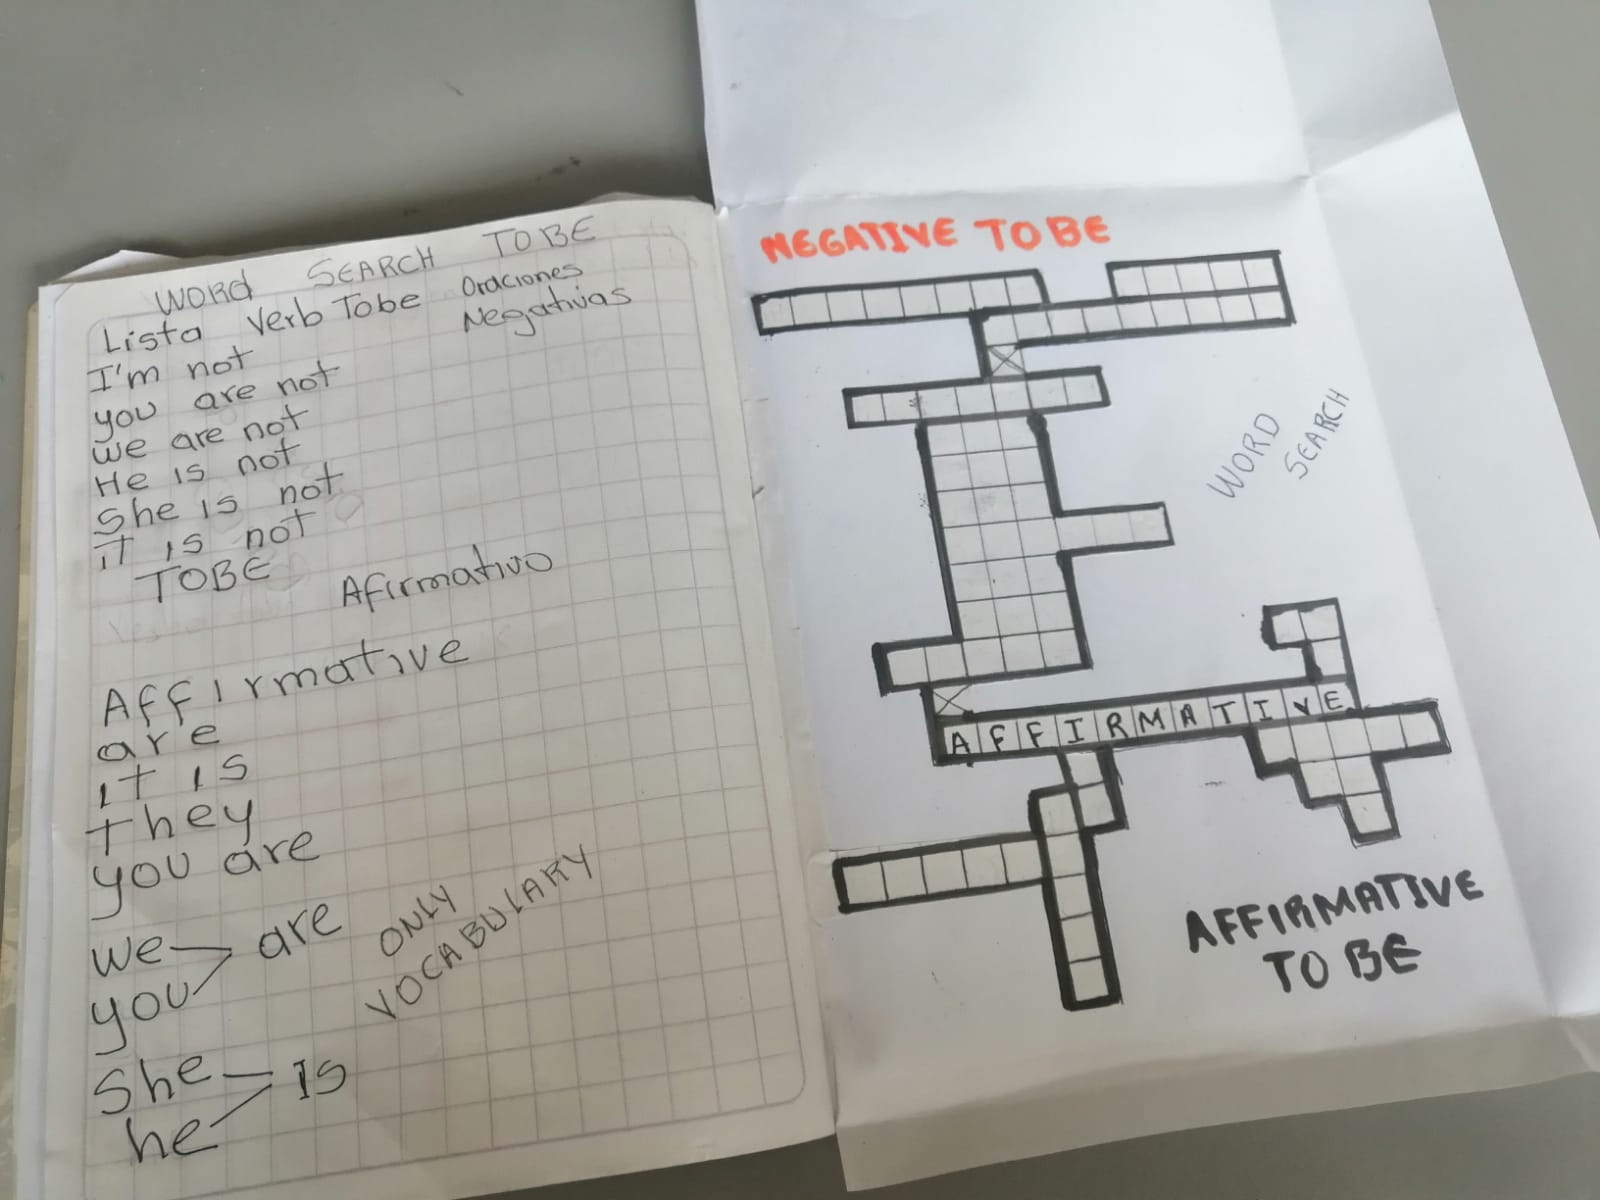 WORd SEARCH TO BE
Lista Verb Tobe Oraciones
Negativas
I'm not
you are not
we are not
He is not
She is not
it is not
TOBE Afirmativo
Affirmative
are
it is
they
you are
we
you
are
ONLY
VOCABULARY
She
he
Is
NEGATIVE TO BE
WORD
SEARCH
AFFIRMATIVE
AFFIRMATIVE
TO BE